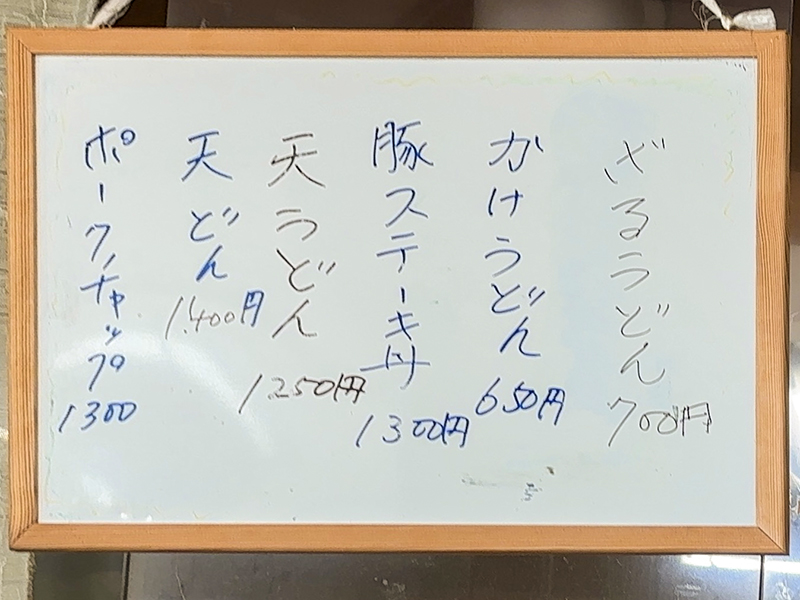 ざるうどん
700円
かけうどん
650円
豚ステーキ丼
1300円
天うどん
1250円
天どん
1.400円
ポークチャップ
1300